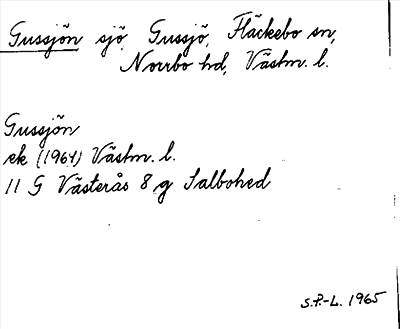 Gussjön sjö, Gussjö, Fläckebo sn,
Norrbo hd, Västm. l.
Gussjön
ek (1964) Västm. l.
11 G Västerås 8 g Salbohed
S.P.-L. 1965